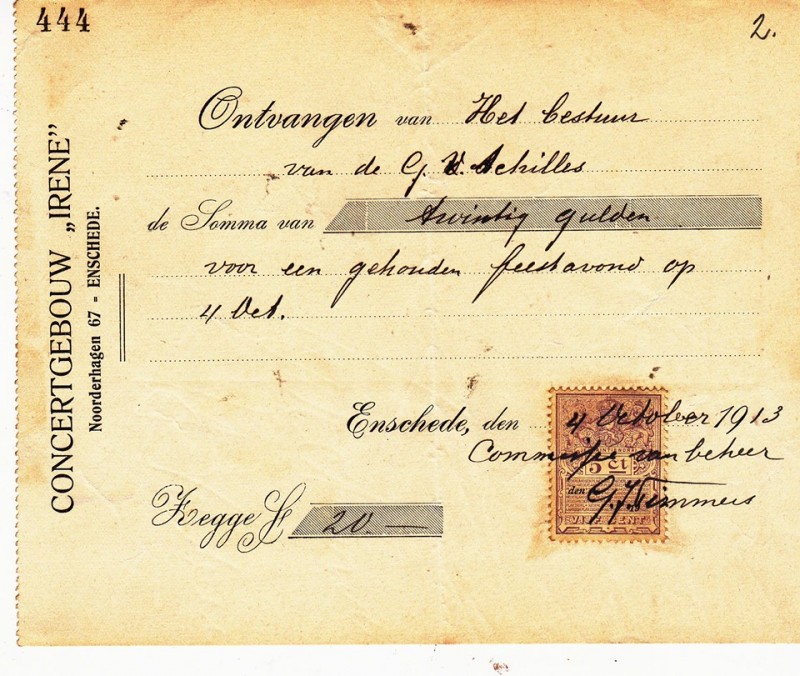 444
2.
CONCERTGEBOUW „IRENE”
Noorderhagen 67 = ENSCHEDE.
Ontvangen van Het bestuur
van de G. V. Achilles
de Somma van twintig gulden
voor een gehouden feestavond op
4 Oct.
Enschede, den 4 October 1913
Commissie van beheer
5 Ct
den
G.J. Timmers
Zegge ƒ 20 —